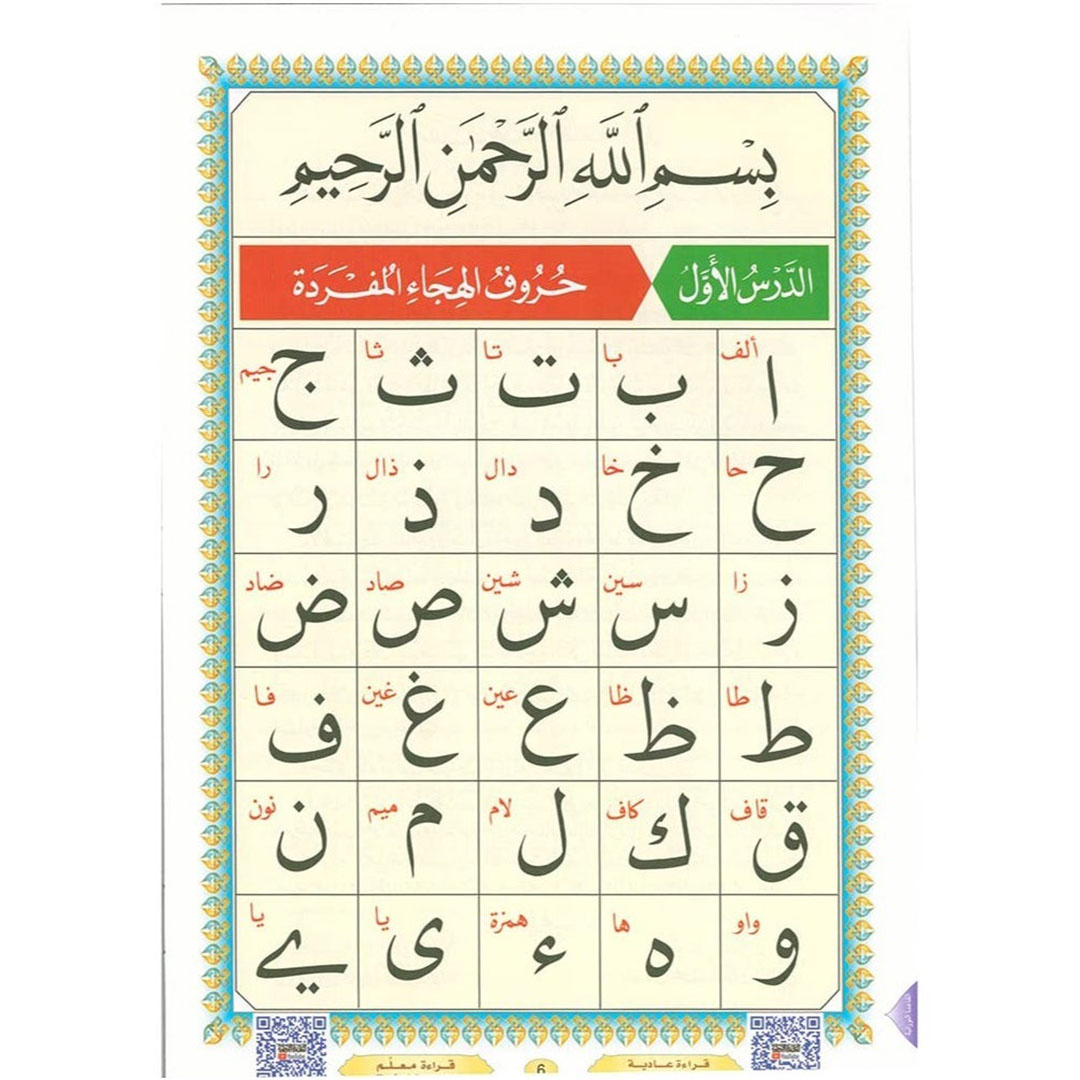 بِسْمِ ٱللَّهِ ٱلرَّحْمَٰنِ ٱلرَّحِيمِ
الدَّرْسُ الْأَوَّلُ حُرُوفُ الهِجَاءِ المُفْرَدَة
ألف ا با ب تا ت ثا ث جيم ج
حا ح خا خ دال د ذال ذ را ر
زا ز سين س شين ش صاد ص ضاد ض
طا ط ظا ظ عين ع غين غ فا ف
قاف ق كاف ك لام ل ميم م نون ن
واو و ها ه همزة ء يا ى يا ے
قراءة عادية 6 قراءة معلّم